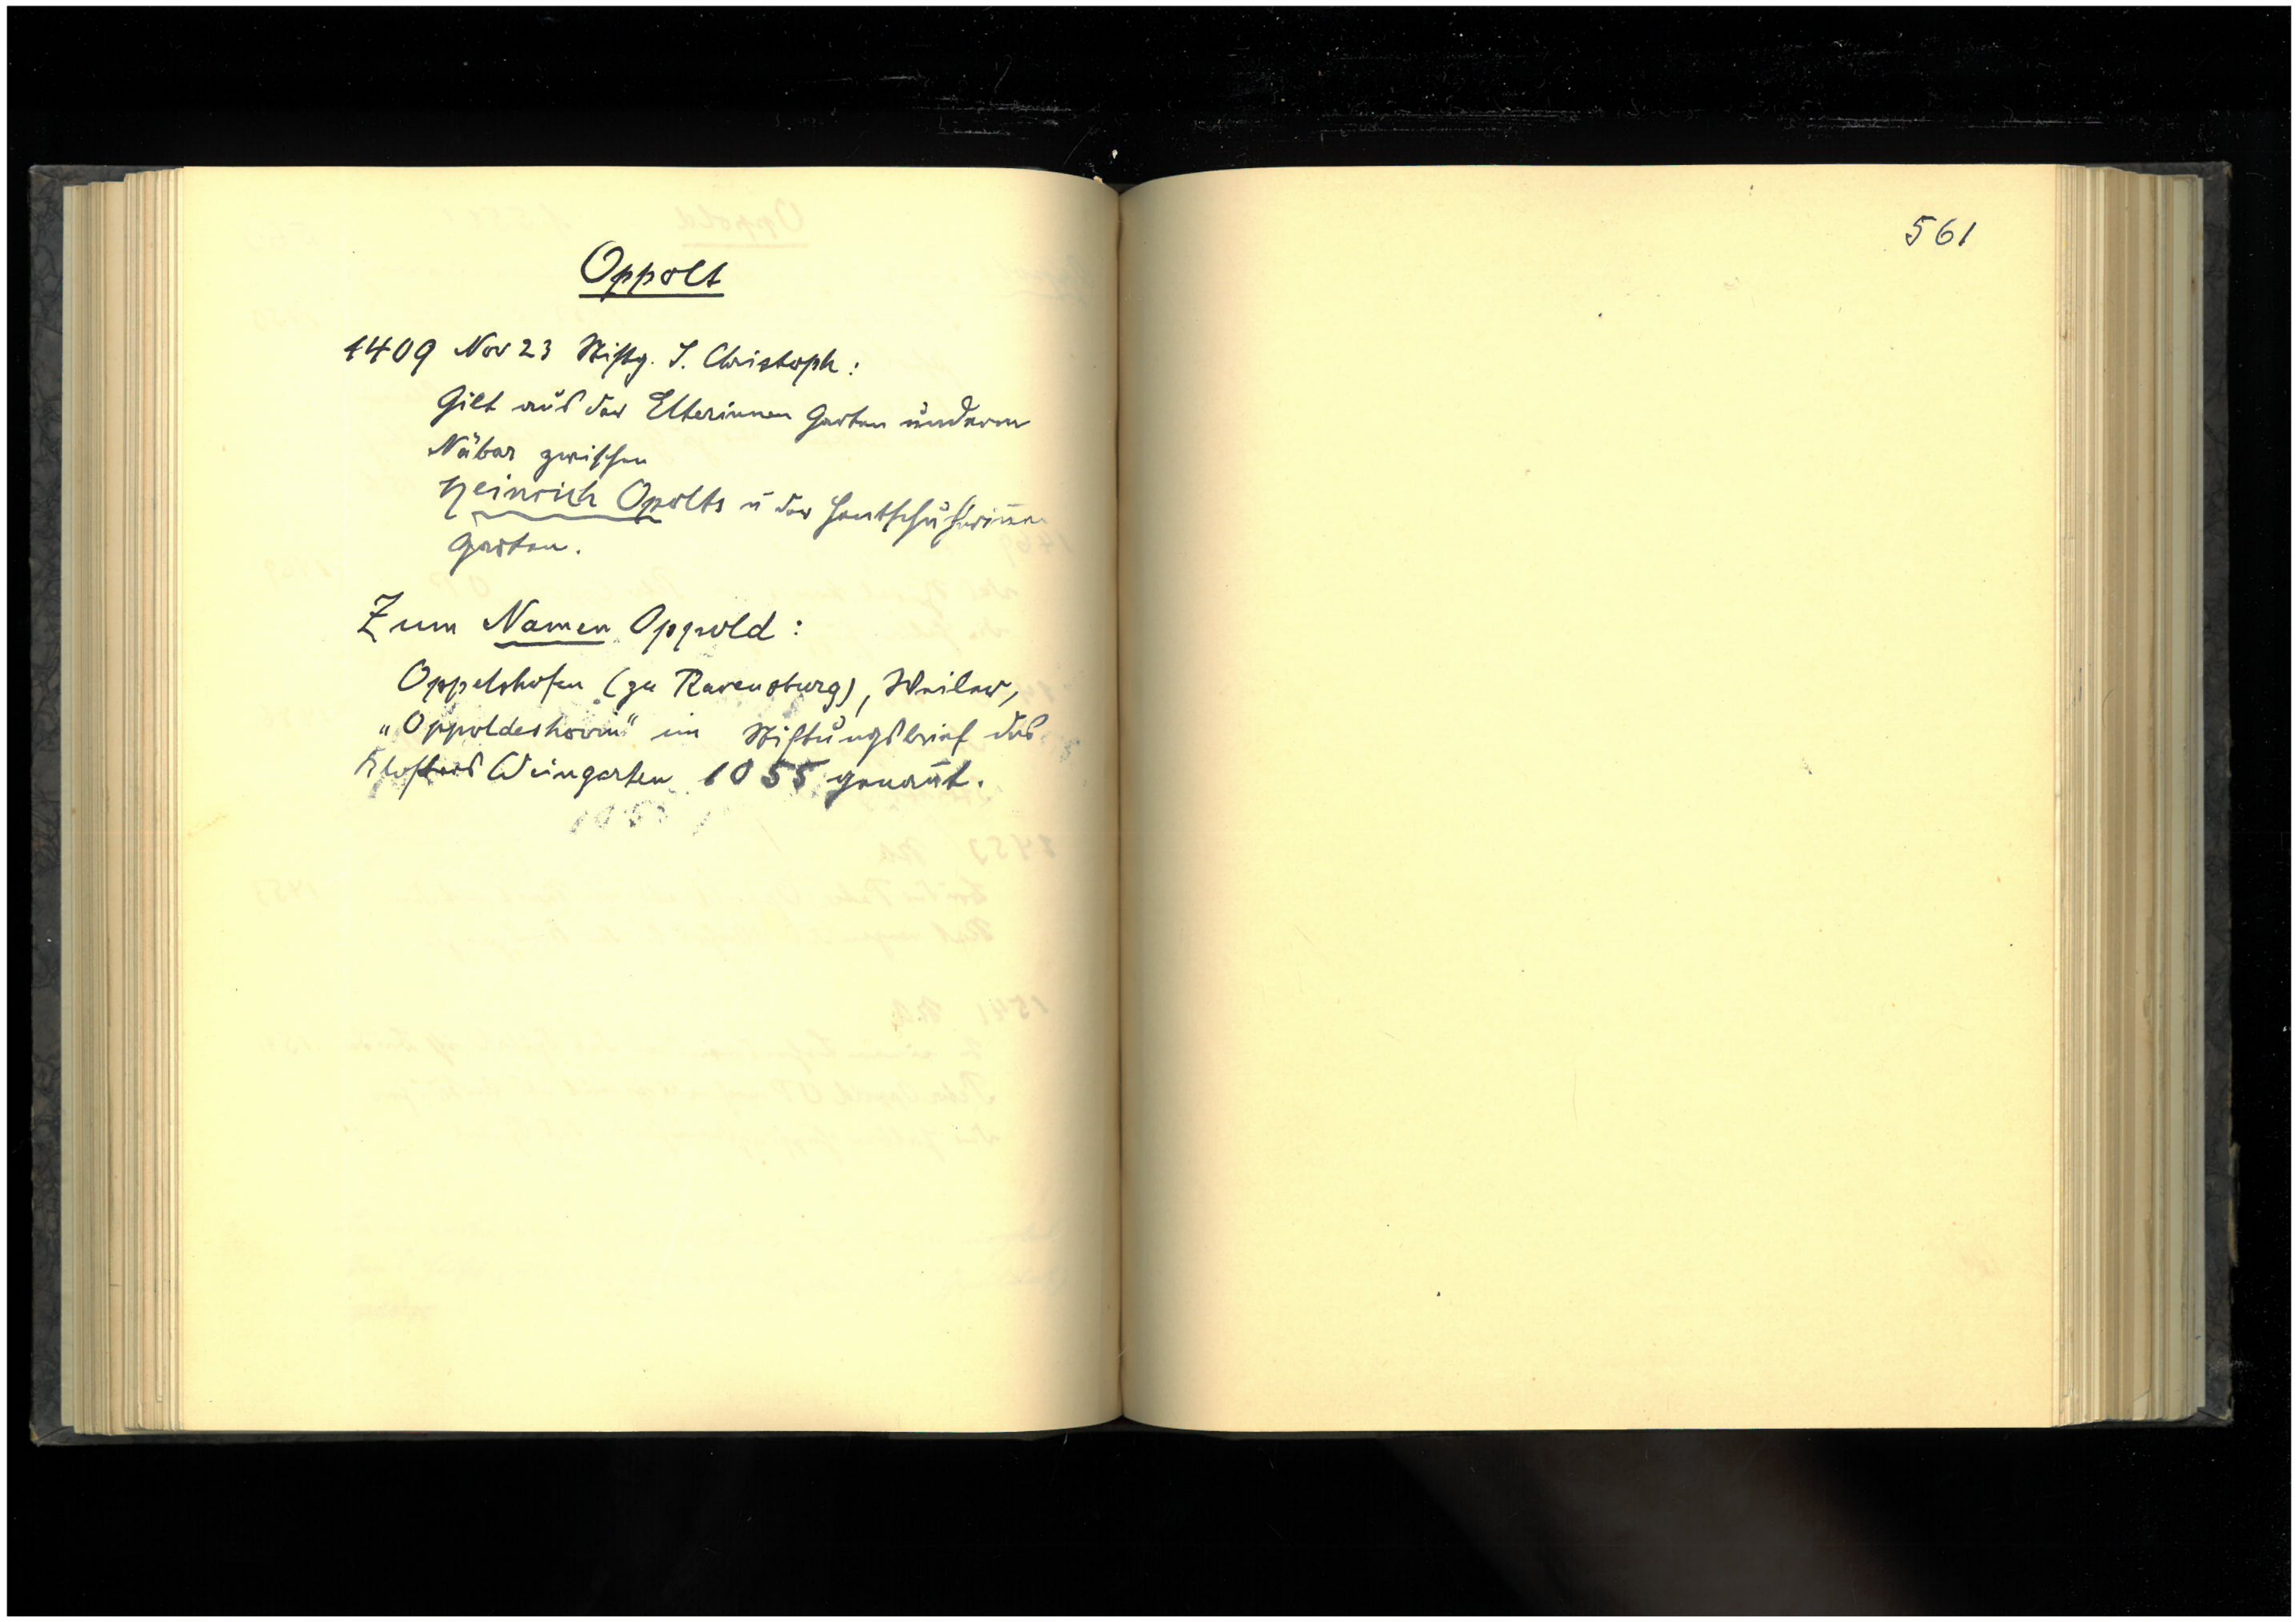 Oppolt
1409 Nov 23 Stiftg. S. Christoph:
Gilt aus der Elterinnen Garten underm
Näbar zwischen
Heinrich Opolts u der Hantschuherinen
Garten.
Zum Namen Oppold:
Oppelshofen (zu Ravensburg), Weiler,
„Oppoldeshovin" im Stiftungsbrief des
Klosters Weingarten 1055 genan̄t.
561